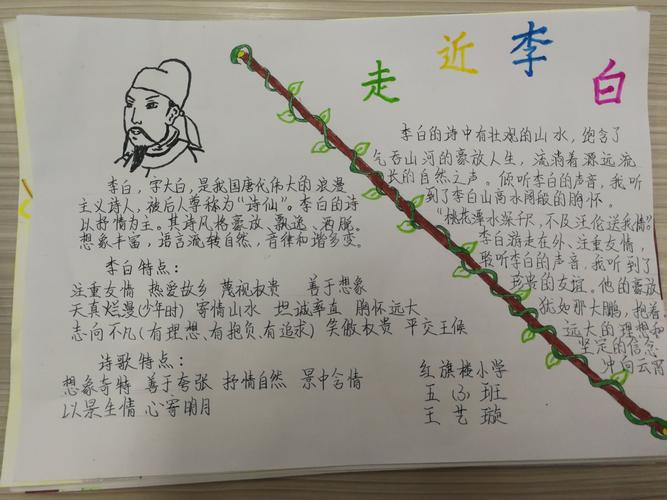 走近李白
李白，字太白，是我国唐代伟大的浪漫
主义诗人，被后人尊称为“诗仙”。李白的诗
以抒情为主。其诗风格豪放、飘逸、洒脱。
想象丰富，语言流转自然，音律和谐多变。
李白特点：
注重友情 热爱故乡 蔑视权贵 善于想象
天真烂漫(少年时) 寄情山水 坦诚率直 胸怀远大
志向不凡(有理想、有抱负、有追求) 笑傲权贵 平交王侯
诗歌特点：
想象奇特 善于夸张 抒情自然 景中含情
以景生情 心寄明月
李白的诗中有壮观的山水，饱含了
气吞山河的豪放人生，流淌着源远流
长的自然之声。倾听李白的声音，我听
到了李白山高水阔般的胸怀。
“桃花潭水深千尺，不及汪伦送我情”。
李白游走在外、注重友情，
聆听李白的声音，我听到了
珍贵的友谊。他的豪放
犹如那大鹏，抱着
远大的理想和
坚定的信念
冲向云霄
红旗楼小学
五(3)班
王艺璇